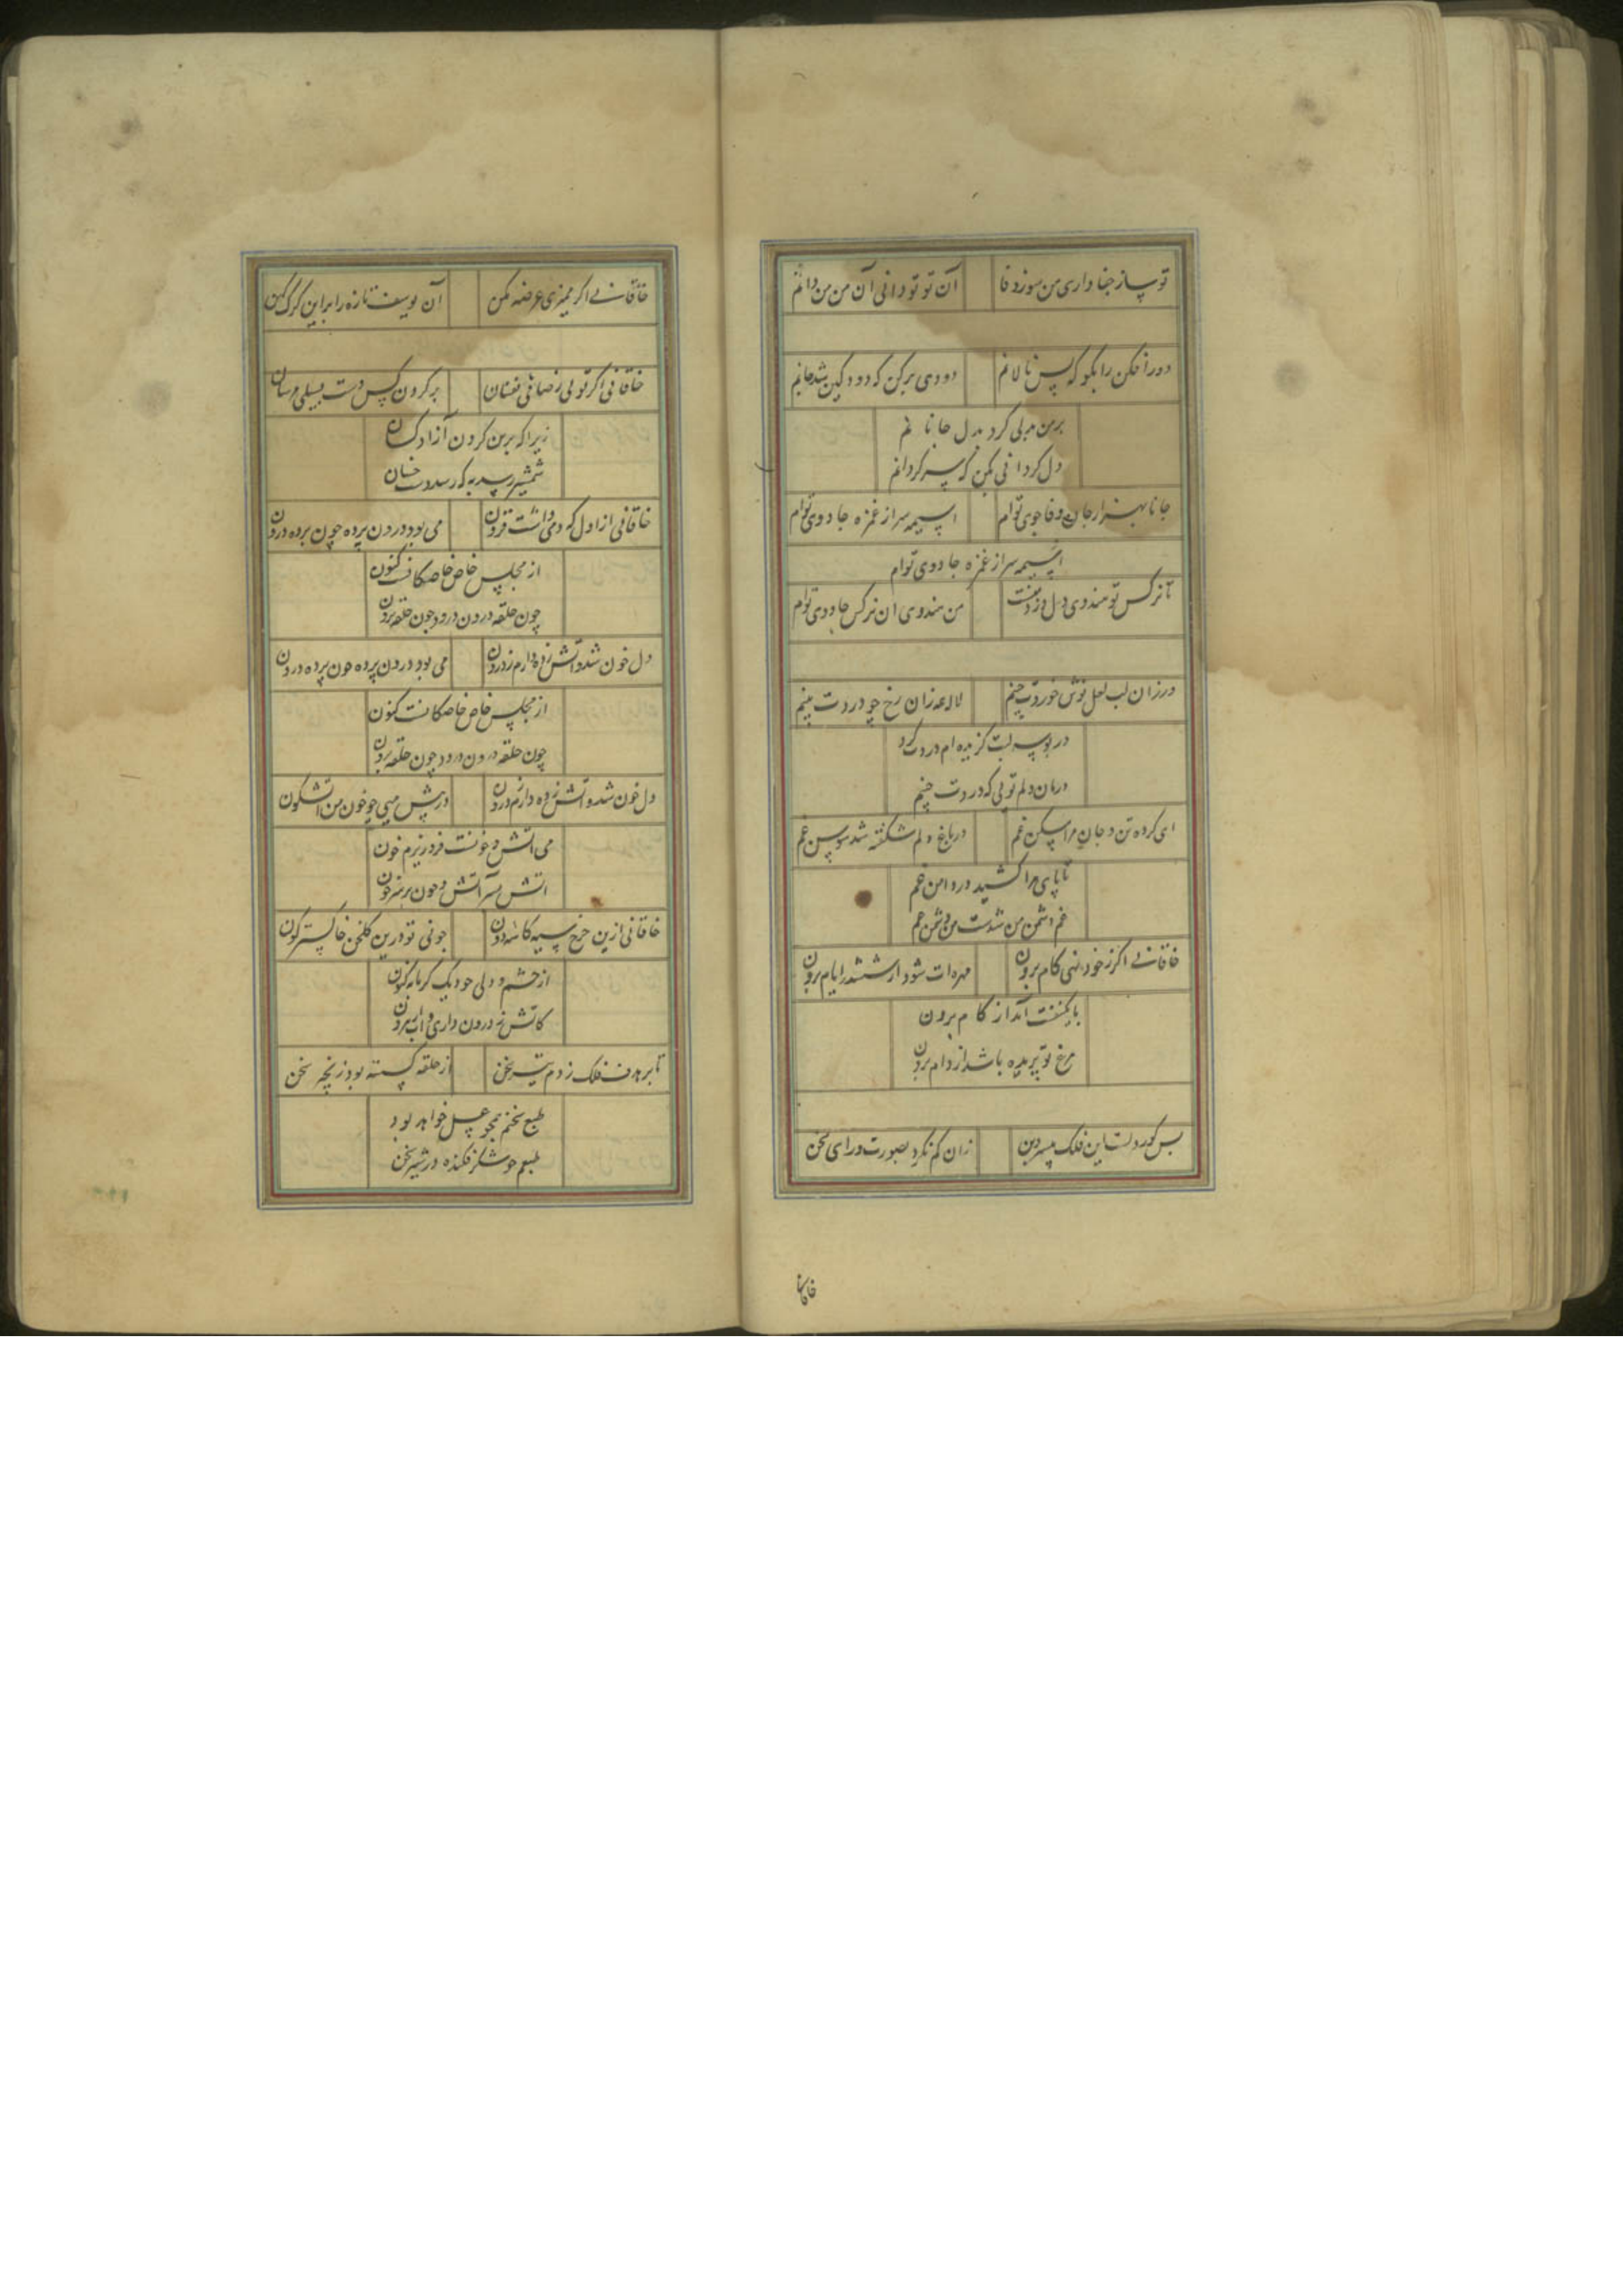 تو ساز جفا داری من سوز وفا
آن تو تو دانی آن من من دانم
دورافکن را بگو که بس نالانم
دودی برکن که دود کین شد جانم
بر من بدلی کرد بدل جانانم
دل گردانی مکن که سرگردانم
جانا بهزار جان وفا جوی توام
آسیمه سر از غمزه جادوی توام
آسیمه سر از غمزه جادوی توام
تا نرکس تو هندوی دل دزد
من هندوی آن نرکس جادوی توام
درزان لب لعل نوش خوردت چینم
لاله زان رخ چو وردت چینم
در بوسه لبت گزیده ام دردت کرد
درمان دلم تویی که دردت چینم
ای کرده تن و جان مرا مسکن غم
در باغ دلم شکفته شد سوسن غم
تا پای مرا کشید در دامن غم
غم دشمن من شدست من دشمن غم
خاقانی اگر ز خود نهی کام برون
مهره ات شود از ششدر ایام برون
باز کام برون
مرغ تو پریده باشد از دام برون
بس کور دلست این فلک بی سر و بن
زان کم نکرد بصورت و رای سخن
خاقانی
خاقانی اگر ممیزی عرضه مکن
آن یوسف تازه را بر این کرک کهن
خاقانی اگر تویی ز صافی نفسان
بر کردن کس دست بسیلی مرسان
زیرا که برین کردن آزاد کسان
شمشیر رسد به که رسد دست خسان
خاقانی از اول که دمی داشت فزون
می بود درون پرده چون پرده درون
از مجلس خاص خاصکانست کنون
چون حلقه درون در و چون حلقه برون
دل خون شد و آتش زده دارم ز درون
می بود درون پرده چون پرده درون
از مجلس خاص خاصکانست کنون
چون حلقه درون در و چون حلقه برون
دل خون شد و آتش زده دارم ز درون
در پیش میی چو خون من آتشگون
می آتش و خونست فرو ریزم خون
آتش بسر آتش و خون بر سر خون
خاقانی ازین چرخ سیه کاسه دون
چونی تو درین کلخن خاکسترگون
از چشم و دلی چو دیک کرمابه کنون
کآتش ز درون داری و آب از برون
تا بر هدف فلک زدم تیر سخن
از حلقه کسسته بود زنجیر سخن
طبع سخنم همچو عسل خواهد بود
طبعم چو شکر فکنده در شیر سخن